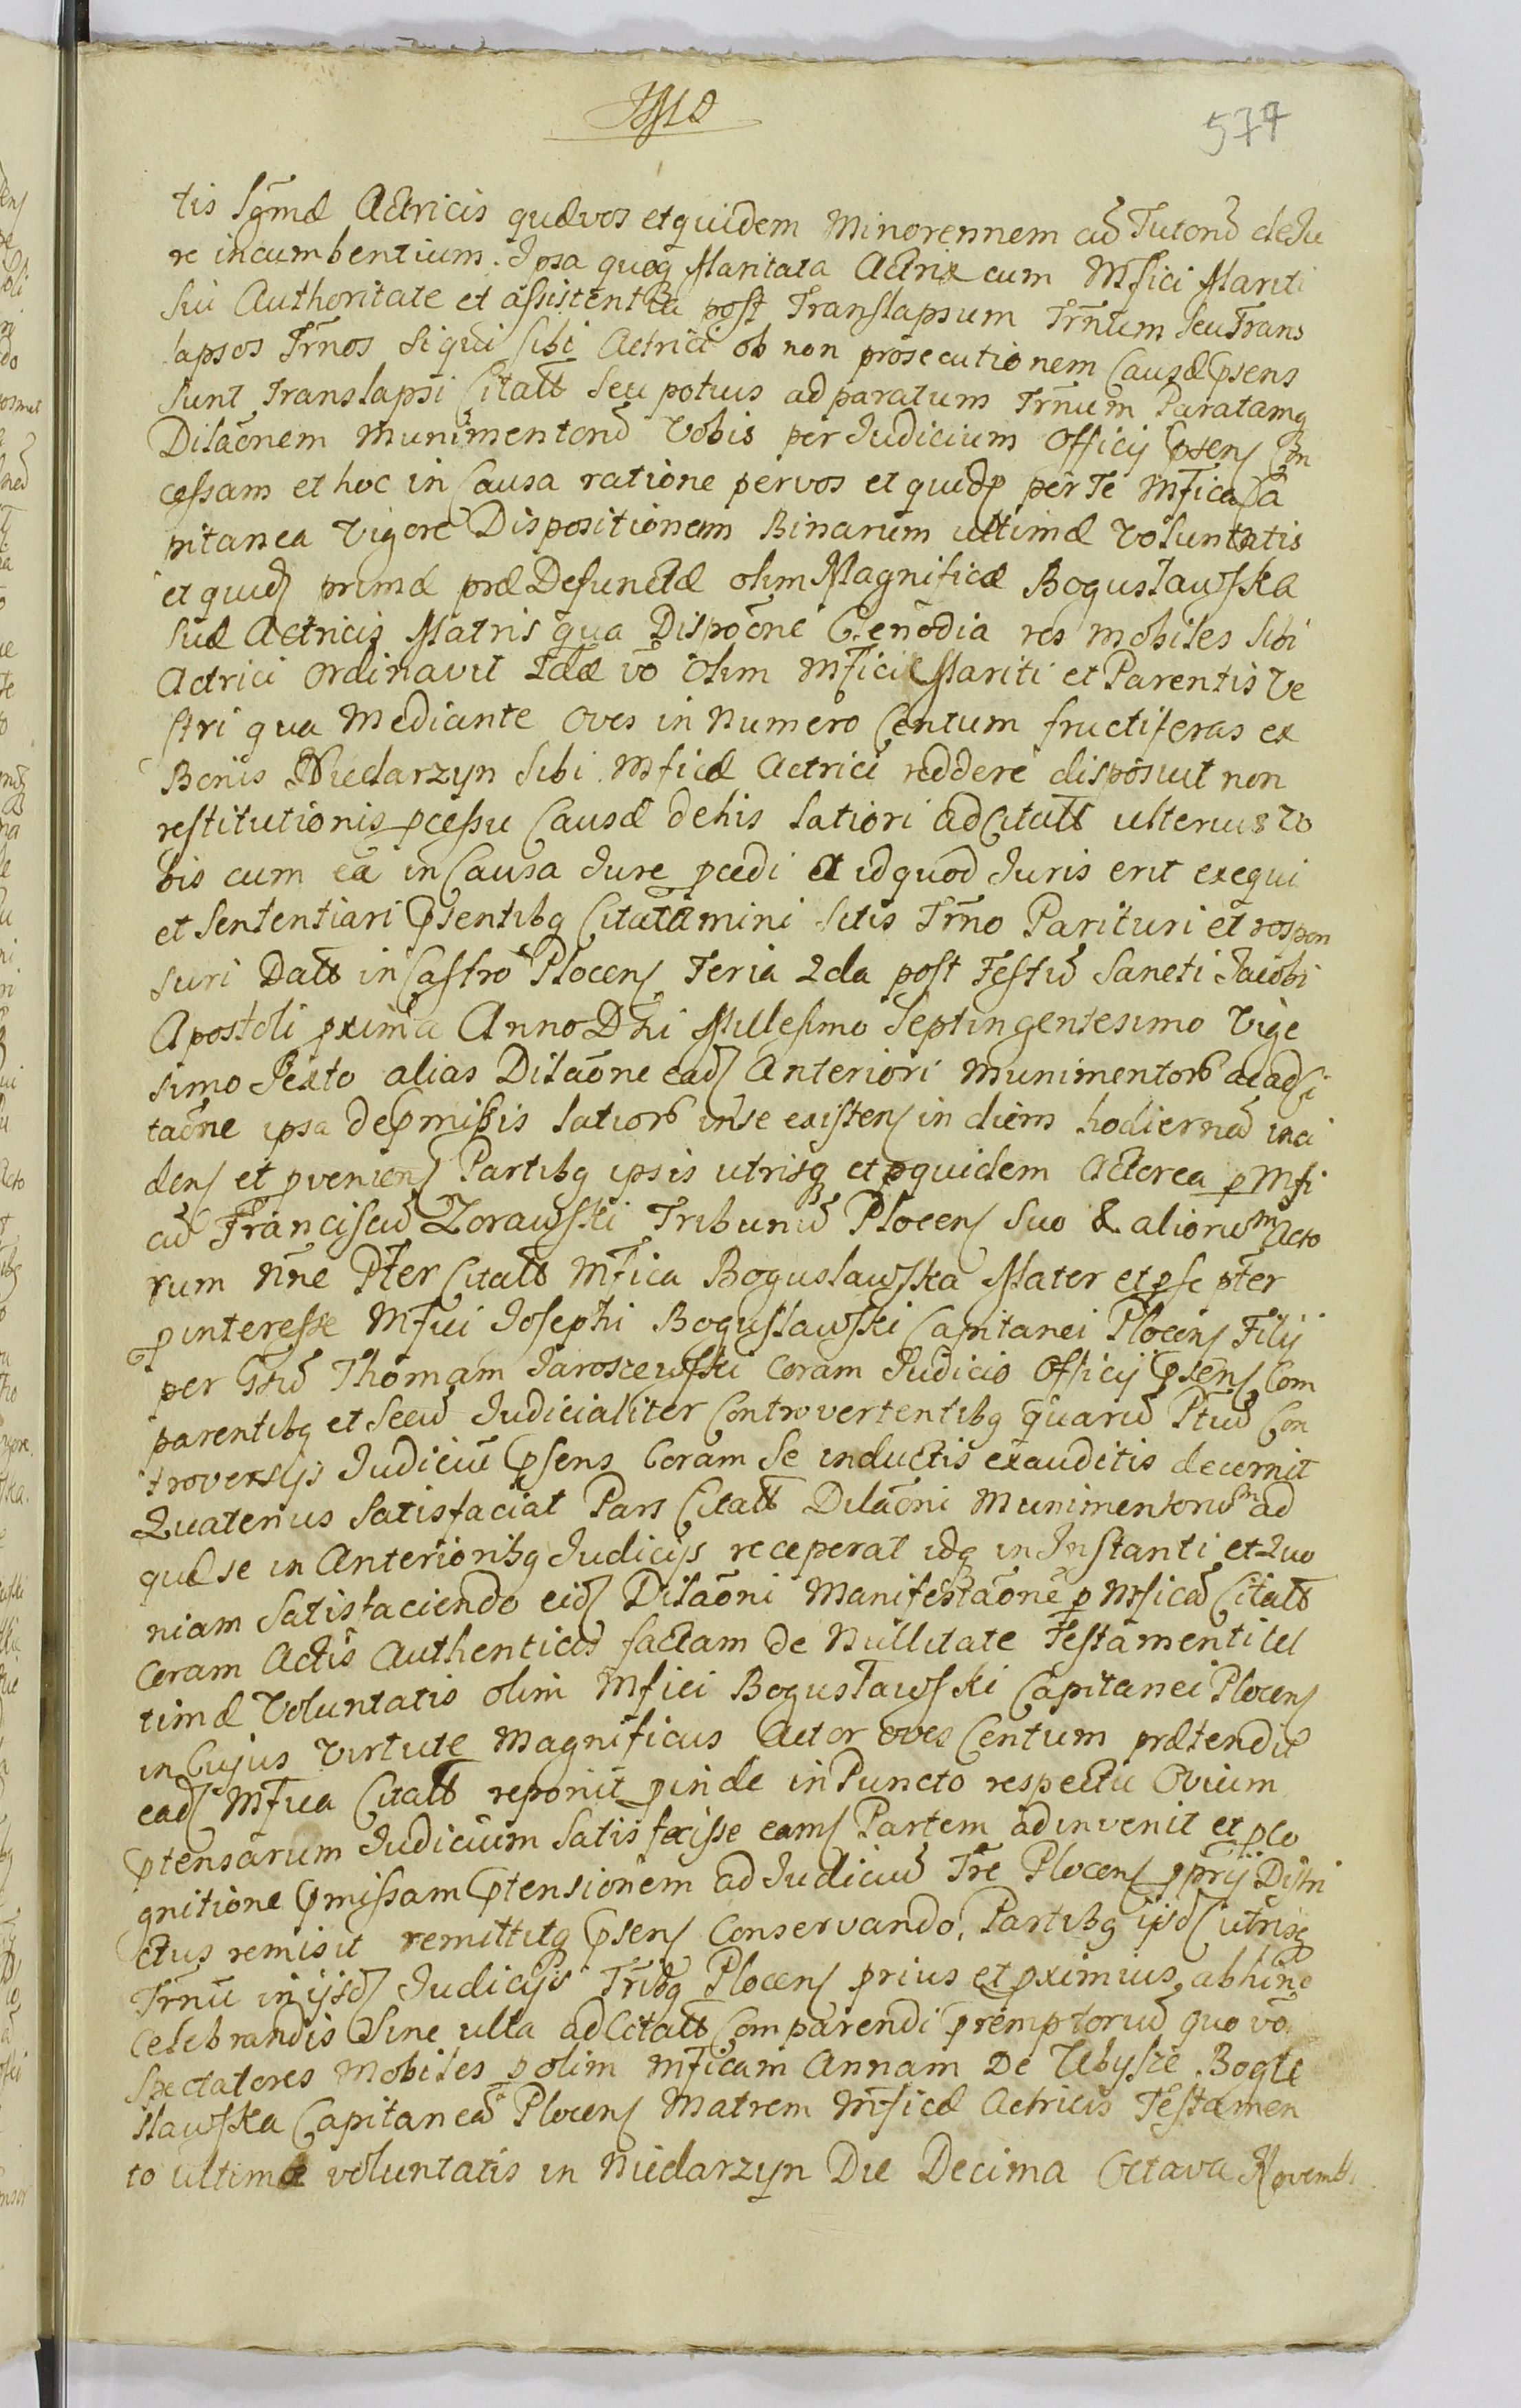 577
tis Sgmæ Actricis quævos etquidem Minorennem cū Tutorū deJu
re incumbentium. Ipsa quoq Maritata Actrix cum Mfici Mariti
Sui Authoritate et assistentia post Translapsum Trñum seu Trans
lapsos Trños Siqui sibi Actrici ob non prosecutionem Causæ Psens
sunt Translapsi Citatt seu potius ad paratum Trñum Paratamq
Dilaõnem Munimentorū Vobis per Judicium Officij Psens Con
cessam et hoc in Causa ratione pervos et quidp per Te Mfica Ca
pitanea Vigore Dispositionem Binarum ultimæ Voluntatis
et quid primæ præ Defunctæ olim Magnificæ Bogusławska
suæ Actricis Matris qua Dispoõne Genodia res mobiles sibi
Actrici Ordinavit 2dæ vō Olim Mfici Mariti et Parentis Ve
stri qua Mediante Oves in Numero Centum fructiferas ex
Bonis Niedarzyn sibi Mficæ Actrici reddere disposuit non
restitutionis pcessu Causæ dehis latiori adcitatt ulterius vo
bis cum ea in Causa Jure pcedi et idquod Juris erit exequi
et Sententiari Psentibq Citatamini sitis Trño Parituri et respon
suri Datt in Castro Plocens Feria 2da post Festū Sancti Jacobi
Apostoli pxima Anno Dñi Millesimo Septingentesimo Vige
simo Sexto alias Dilaõne ead Anteriori Munimentorō ac adci
taõne ipsa dePmissis latiorō inse existens in diem hodiernū inci
dens et pveniens Partibq ipsis utrisq et pquidem Actorea p Mfi
cū Franciscū Zorawski Tribunū Plocens suo & aliorum Acto
rum nñe Pter Citatt Mfica Bogusławska Mater et pse pter
pinteresse Mfici Josephi Bogusławski Capitanei Plocens Filij
per Gsū Thomam Jaroszewski Coram Judicio Officij Psens Com
parentibq et secū Judicialiter Controvertentibq quarū Ptiū Con
troversijs Judiciū Psens Coram se inductis exauditis decernit
Quatenus Satisfaciat Pars Citatt Dilaõni Munimentorum ad
quæ se in Anterioribq Judicijs receperat idq in Instanti et Quo
niam Satisfaciendo eid Dilaõni Manifestaõne p Mficā Citatt
Coram Actis Authenticis factam de Nullitate Testamenti Ul
timæ Voluntatis olim Mfici Bogusławski Capitanei Plocens
in Cujus Virtute Magnificus Actor oves Centum prætendit
ead Mfica Citatt reponit pinde in Puncto respectu Ovium
Ptensarum Judicium Satis fecisse eams Partem adinvenit et pco
gnitione Pmissam Ptensionem ad Judiciū Tre Plocens pprij Distri
ctus remisit remittitq Psens Conservando. Partibq ijsd utrisq
Trñū in ijsd Judicijs Tribq Plocens prius et pximius abhinc
Celebrandis Sine ulla adCitatt Comparendi Premptoriū quo vō
Spectatores Mobiles p olim Mficam Annam De Ubysze Bogu
sławska Capitaneā Plocens Matrem Mficæ Actricis Testamen
to ultimæ voluntatis in Niedarzyn Die Decima Octava Novemb